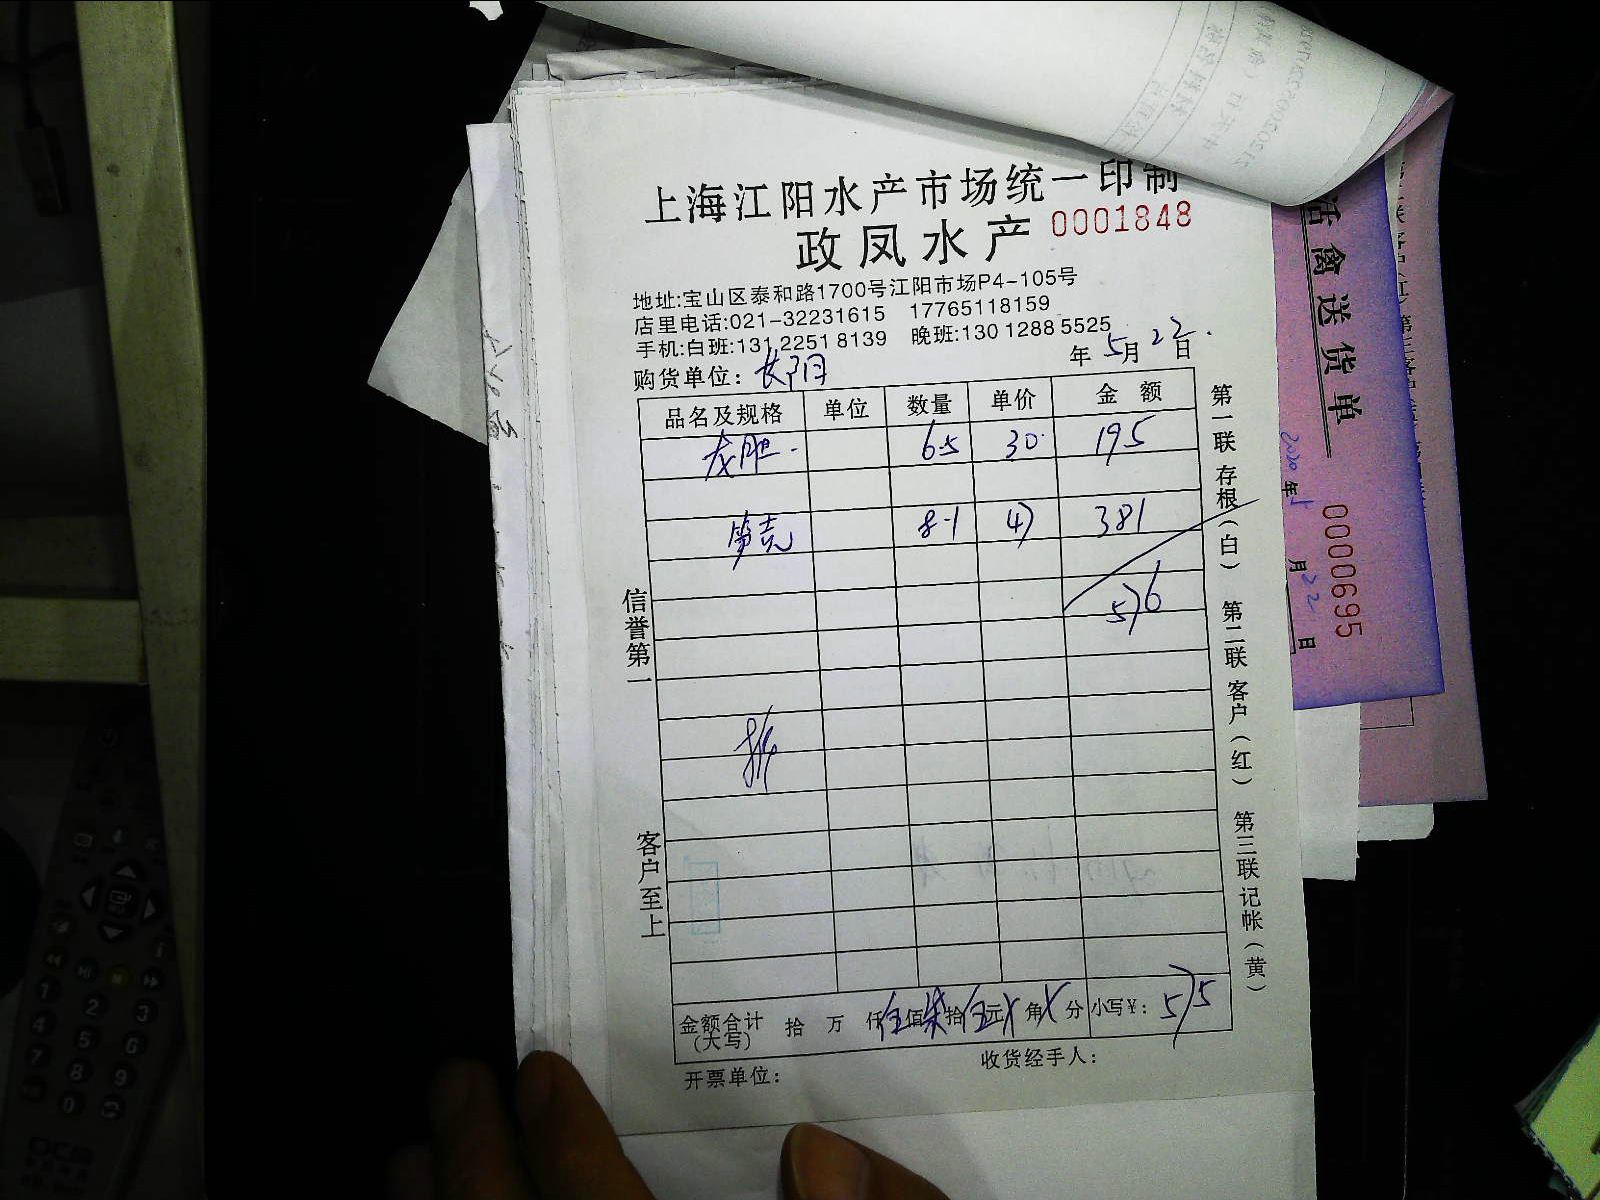 上海江阳水产市场统一印制
政凤水产 0001848
地址:宝山区泰和路1700号江阳市场P4-105号
店里电话:021-32231615 17765118159
手机:白班:131 2251 8139 晚班:130 1288 5525
年5月22日
购货单位:长阳
品名及规格 单位 数量 单价 金额
龙胆 6.5 30 195
笋壳 8.1 47 381
576
信誉第一
客户至上
金额合计(大写) 拾 万 仟伍佰柒拾伍元 角 分 小写¥: 575
开票单位:
收货经手人:
第一联存根(白) 第二联客户(红) 第三联记帐(黄)
活禽送货单
0000695
2020年 月22日